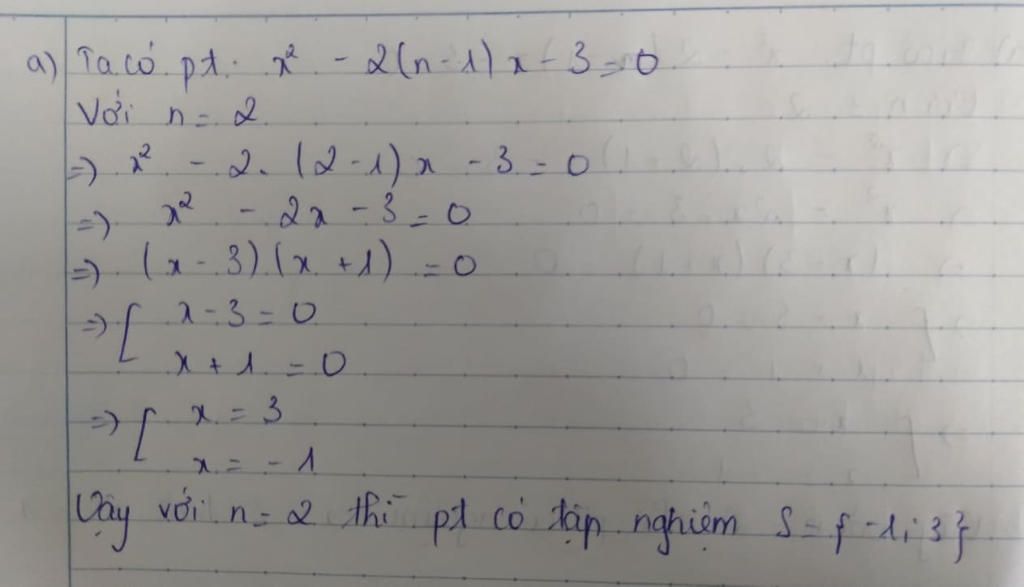 a) Ta có pt: x² - 2(n-1)x - 3 = 0
Với n = 2
=) x² - 2. (2-1)x - 3 = 0
=) x² - 2x - 3 = 0
=) (x-3)(x+1) = 0
=) [ x-3 = 0
x + 1 = 0
=) [ x = 3
x = -1
Vậy với n = 2 thì pt có tập nghiệm S = {-1; 3}